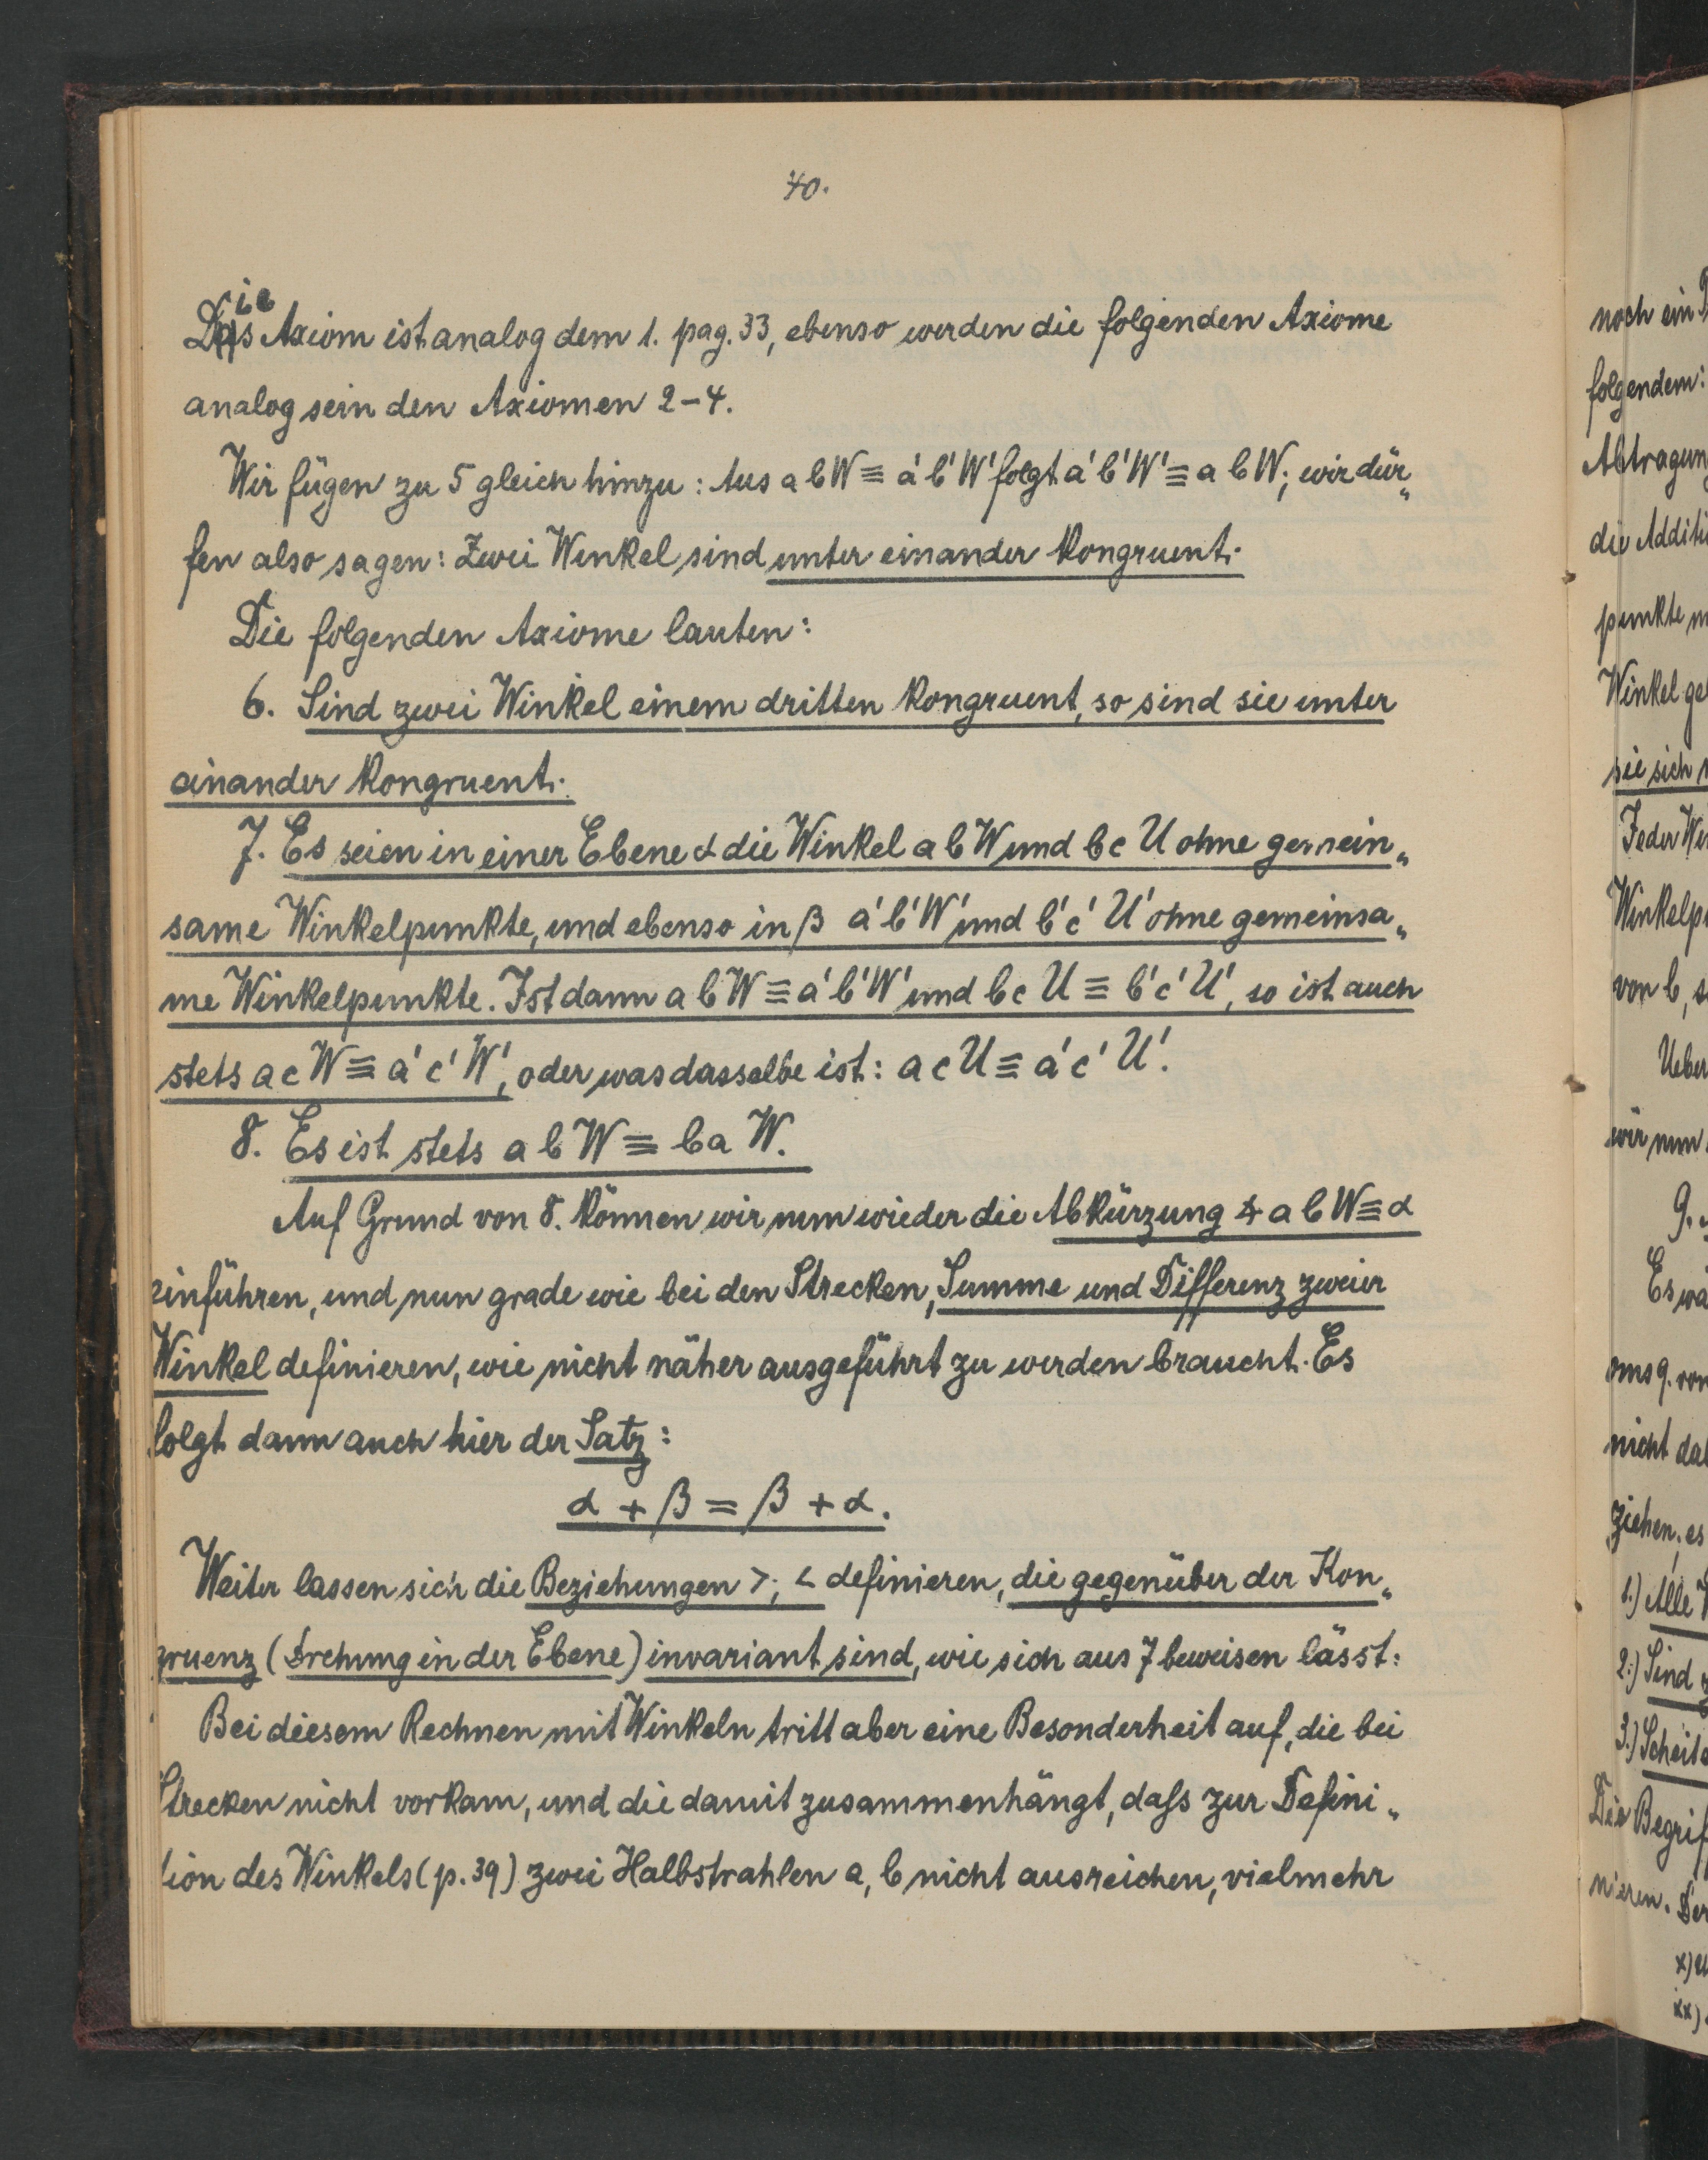 40.
Dies Axiom ist analog dem 1. pag. 33, ebenso werden die folgenden Axiome
analog sein den Axiomen 2–4.
Wir fügen zu 5 gleich hinzu: Aus a b W ≡ a' b' W' folgt a' b' W' ≡ a b W; wir dür„
fen also sagen: Zwei Winkel sind unter einander kongruent.
Die folgenden Axiome lauten:
6. Sind zwei Winkel einem dritten kongruent, so sind sie unter
einander kongruent.
7. Es seien in einer Ebene α die Winkel a b W und b c U ohne gemein„
same Winkelpunkte, und ebenso in β a' b' W' und b' c' U' ohne gemeinsa„
me Winkelpunkte. Ist dann a b W ≡ a' b' W' und b c U ≡ b' c' U', so ist auch
stets a c W ≡ a' c' W', oder was dasselbe ist: a c U ≡ a' c' U'.
8. Es ist stets a b W ≡ b a W.
Auf Grund von 8. können wir nun wieder die Abkürzung ∢ a b W ≡ α
einführen, und nun grade wie bei den Strecken, Summe und Differenz zweier
Winkel definieren, wie nicht näher ausgeführt zu werden braucht. Es
folgt dann auch hier der Satz:
α + β = β + α.
Weiter lassen sich die Beziehungen >; < definieren, die gegenüber der Kon„
gruenz (Drehung in der Ebene) invariant sind, wie sich aus 7 beweisen lässt:
Bei diesem Rechnen mit Winkeln tritt aber eine Besonderheit auf, die bei
Strecken nicht vorkam, und die damit zusammenhängt, dass zur Defini„
tion des Winkels (p. 39) zwei Halbstrahlen a, b nicht ausreichen, vielmehr
noch ein
folgendem:
Abtragun
die Additi
punkte
Winkel ge
sie sich
Jeder Wi
Winkelp
von b, s
Ueber
wir nun
9.
Es wä
oms 9. von
nicht da
ziehen; es
1.) Alle
2.) Sind
3.) Scheite
Die Begrif
nieren. Der
x)
xx)